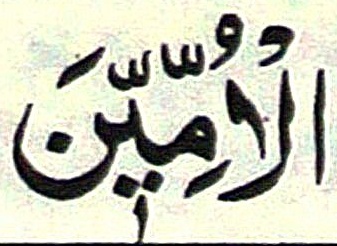 الْاُمِّيّٖنَ